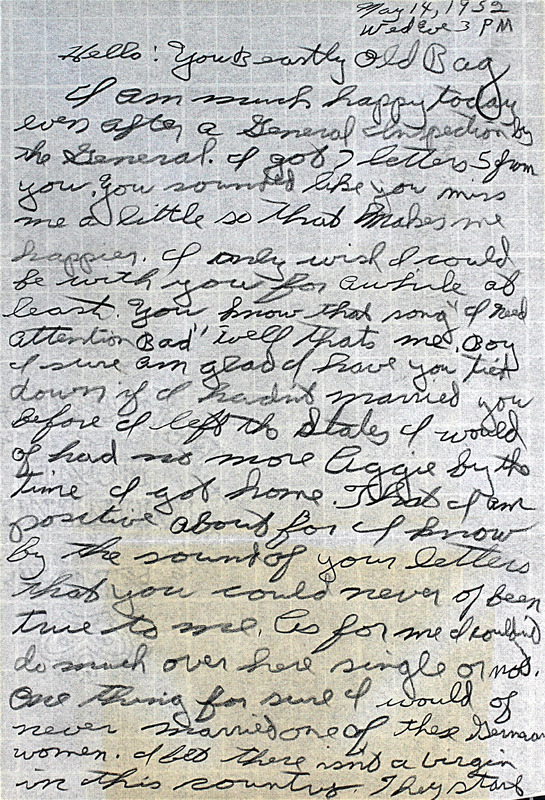 May 14, 1952
Wed Eve 3 PM
Hello! You Beastly Old Bag
I am much happy today
even after a General Inspection by
the General. I got 7 letters 5 from
you. You sounded like you miss
me a little so that makes me
happier. I only wish I could
be with you for awhile at
least. You know that song "I need
attention Bad" well thats me. Boy
I sure am glad I have you tied
down if I hadnt married you
before I left the States I would
of had no more Aggie by the
time I got home. That I am
positive about for I know
by the sound of your letters
that you could never of been
true to me. As for me I couldn't
do much over here single or not.
One thing for sure I would of
never married one of these German
women. I bet there isn't a virgin
in this country. They start